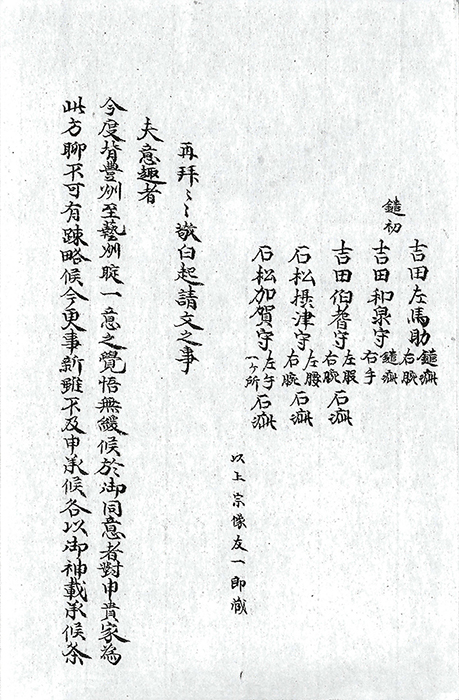 吉田左馬助 鑓疵 右腕
鑓初 吉田和泉守 鑓疵 右手
吉田伯耆守 左股 右腕 石疵
石松摂津守 左腰 右腕 石疵
石松加賀守 左手 一ヶ所 石疵
以上宗像友一郎蔵
再拝〻〻敬白起請文之事
夫意趣者
今度背豊州至藝州㝎一意之覺悟無緩候於御同意者對申貴家為
此方聊不可有踈略候今更事新雖不及申承候各以御神載承候条